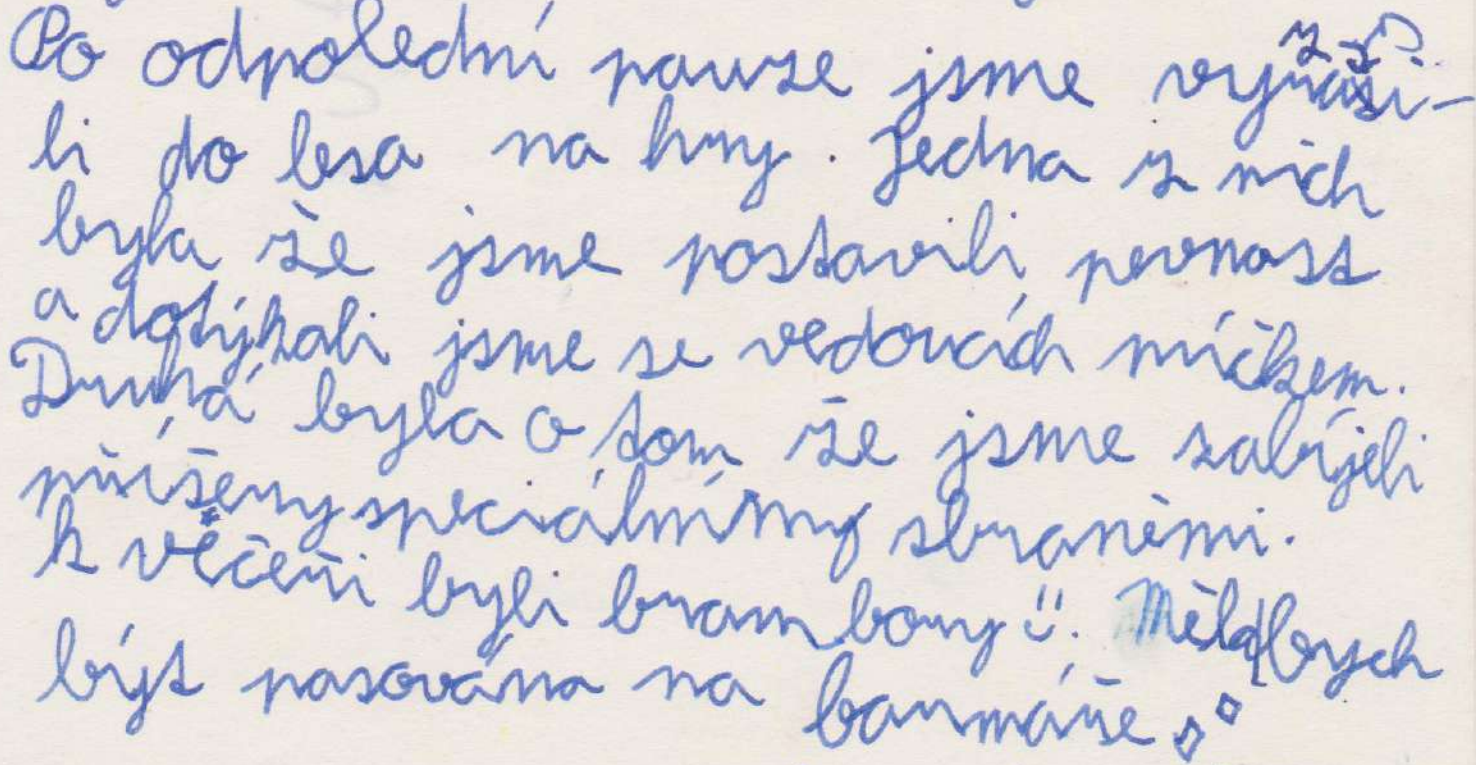 Po odpolední pauze jsme vyrazi-
li do lesa na hry. Jedna z nich
byla že jsme postavili pevnost
a dotýkali jsme se vedoucích míčkem.
Druhá byla o tom že jsme zabíjeli
příšery speciálnímy zbraněmi.
k večeři byli brambory Ü. Měla bych
být pasována na